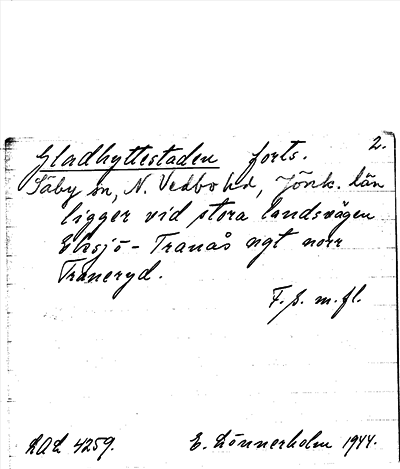 2.
Gladhyttestaden forts.
Säby sn, N. Vedbo hd, Jönk. län
ligger vid stora landsvägen
Eksjö - Tranås ngt norr
Traneryd.
F. s. m. fl.
LAL 4259. E. Lönnerholm 1944.